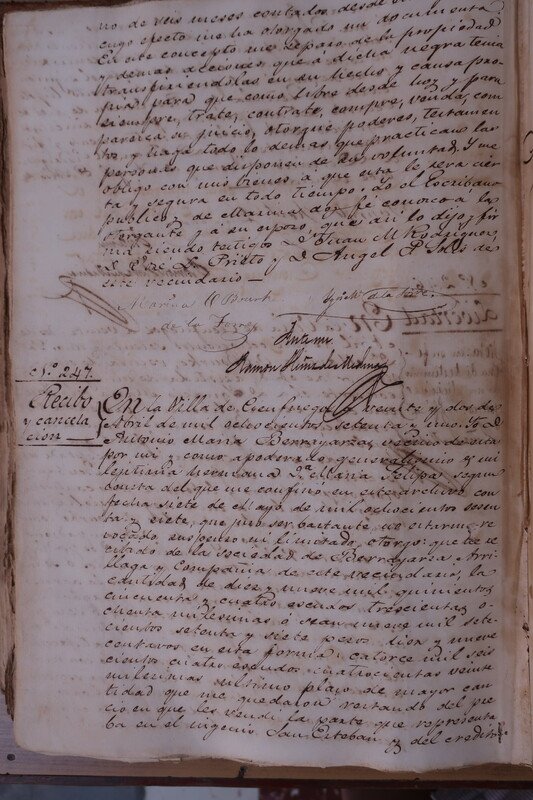 no de seis meses contados desde
cuyo efecto me ha otorgado un documento
En este concepto me separo de la propiedad
y demas acciones que a dicha negra tenia
transfiriendolas en su hecho y causa pro-
pia para que como libre desde hoy y para
siempre, trate, contrate, compre, venda, com
paresca en juicio, otorgue poderes, testamen
tos, y haga todo lo demas que practican las
personas que disponen de su voluntad. Y me
obligo con mis bienes á que esta le sera cier
ta y segura en todo tiempo. Yo el Escribano
publico de Marina doy fé conozco á la
otorgante y a su esposo, que asi lo dijo, fir
ma siendo testigos D. Juan M. Rodriguez,
D. José Prieto y D. Angel P. Solis de
este vecindario—
Maria
de la Torre
Ante mi
Ramon
Nº 247.
Recibo
y cancela
cion
En la Villa de Cienfuegos á veinte y dos de
Abril de mil ochocientos setenta y uno. Yo D.
Antonio Maria Berrayarza, vecino de esta
por mi y como apoderado general de mi
lejitima hermana Dª Maria Felipa segun
consta del que me confirió en este archivo con
fecha siete de Mayo de mil ochocientos sesen
ta y siete, que por ser bastante, no estarme re
vocado, suspenso ni limitado, otorgo: que he re
cibido de la sociedad de Berrayarza Arri
llaga y Compañia de este vecindario, la
cantidad de diez y nueve mil quinientos
cincuenta y cuatro escudos trescientas o-
chenta milesimas ó sean nueve mil sete
cientos setenta y siete pesos diez y nueve
centavos en esta forma: catorce mil seis
cientos escudos cuatrocientas veinte
milesimas ultimo plazo de mayor can
tidad que me quedaron restando del pre
cio en que les vendi la parte que representa
ba en el ingenio San Esteban y del credito